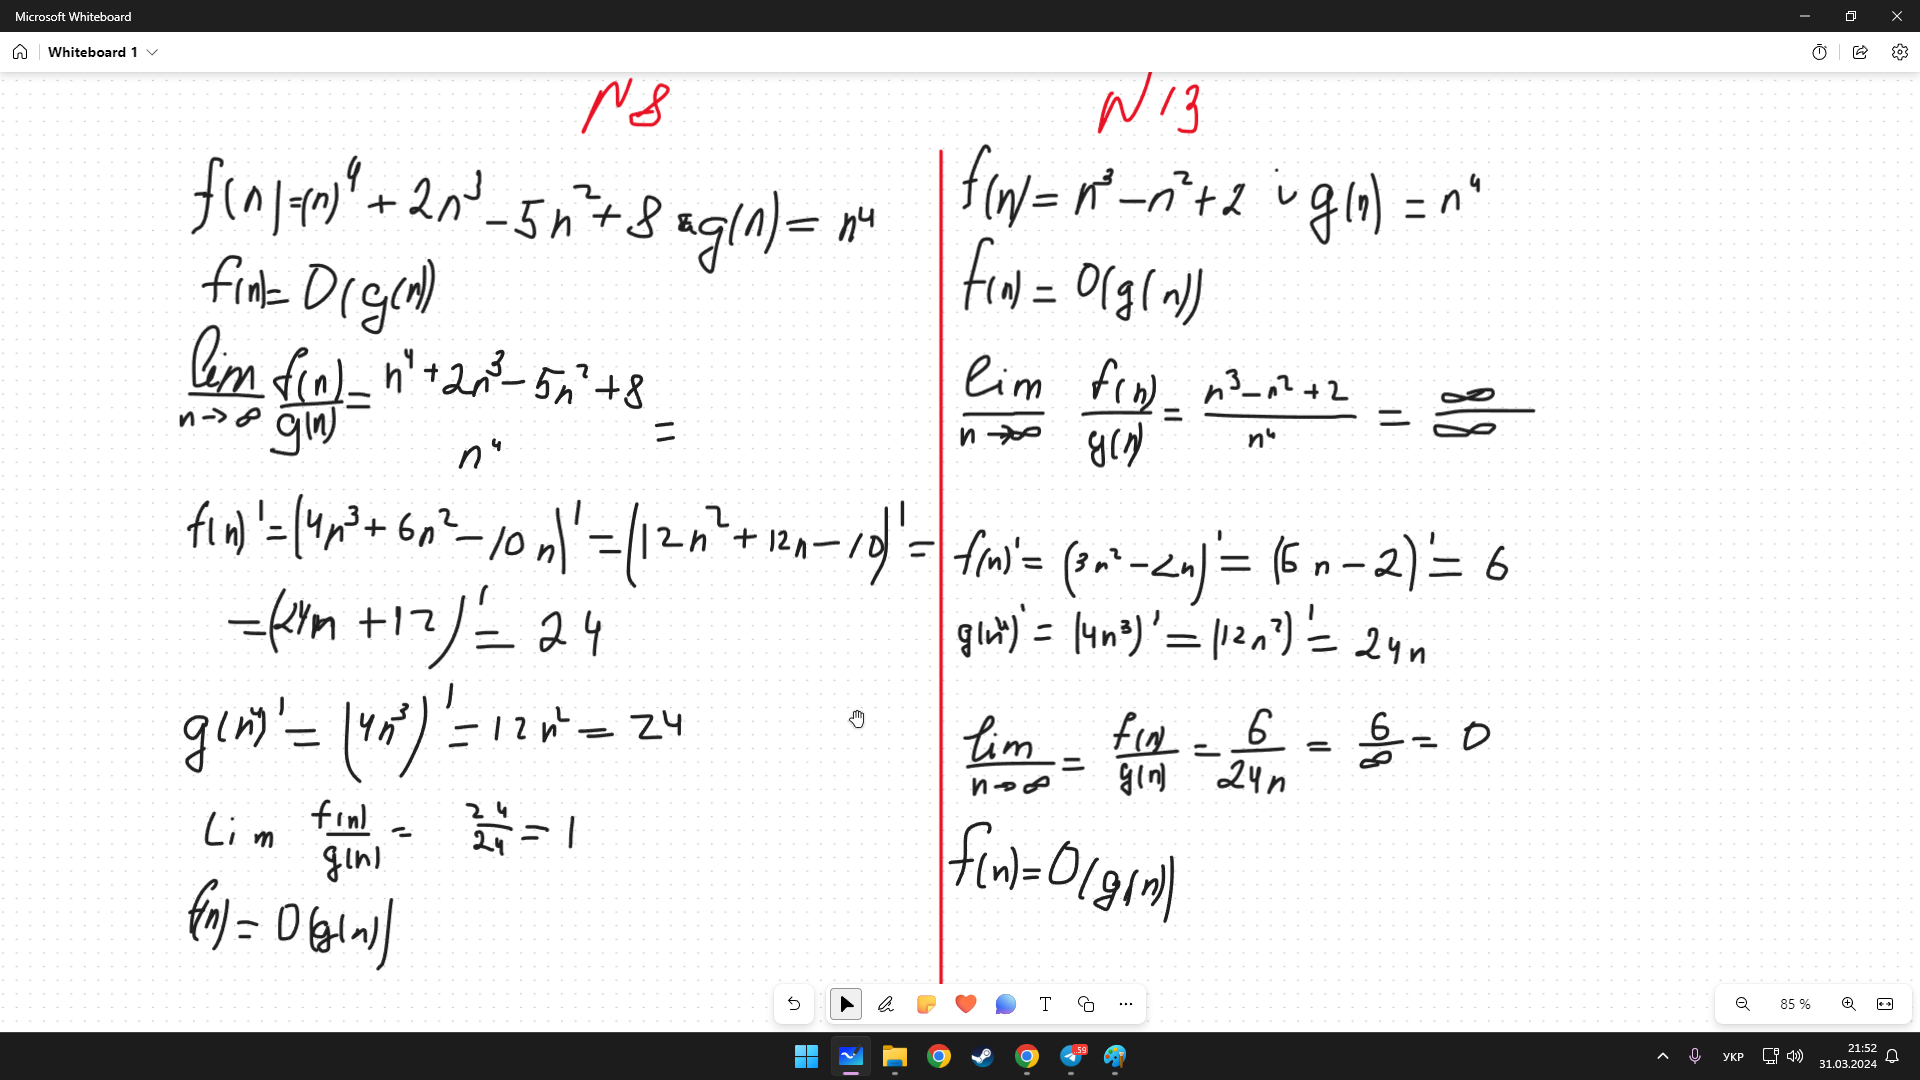 Microsoft Whiteboard
Whiteboard 1
N 8
f(n)=(n)^4 + 2n^3 - 5n^2 + 8 g(n) = n^4
f(n)= O(g(n))
lim n→∞ f(n)/g(n) = n^4 + 2n^3 - 5n^2 + 8 / n^4 =
f(n)' = (4n^3 + 6n^2 - 10n)' = (12n^2 + 12n - 10)' =
= (24n + 12)' = 24
g(n^4)' = (4n^3)' = 12n^2 = 24
Lim f(n)/g(n) = 24/24 = 1
f(n) = O(g(n))
N 13
f(n) = n^3 - n^2 + 2 i g(n) = n^4
f(n) = O(g(n))
lim n→∞ f(n)/g(n) = n^3 - n^2 + 2 / n^4 = ∞/∞
f(n)' = (3n^2 - 2n)' = (6n - 2)' = 6
g(n^4)' = (4n^3)' = (12n^2)' = 24n
lim n→∞ = f(n)/g(n) = 6/24n = 6/∞ = 0
f(n) = O(g(n))
85 %
59
УКР
21:52
31.03.2024